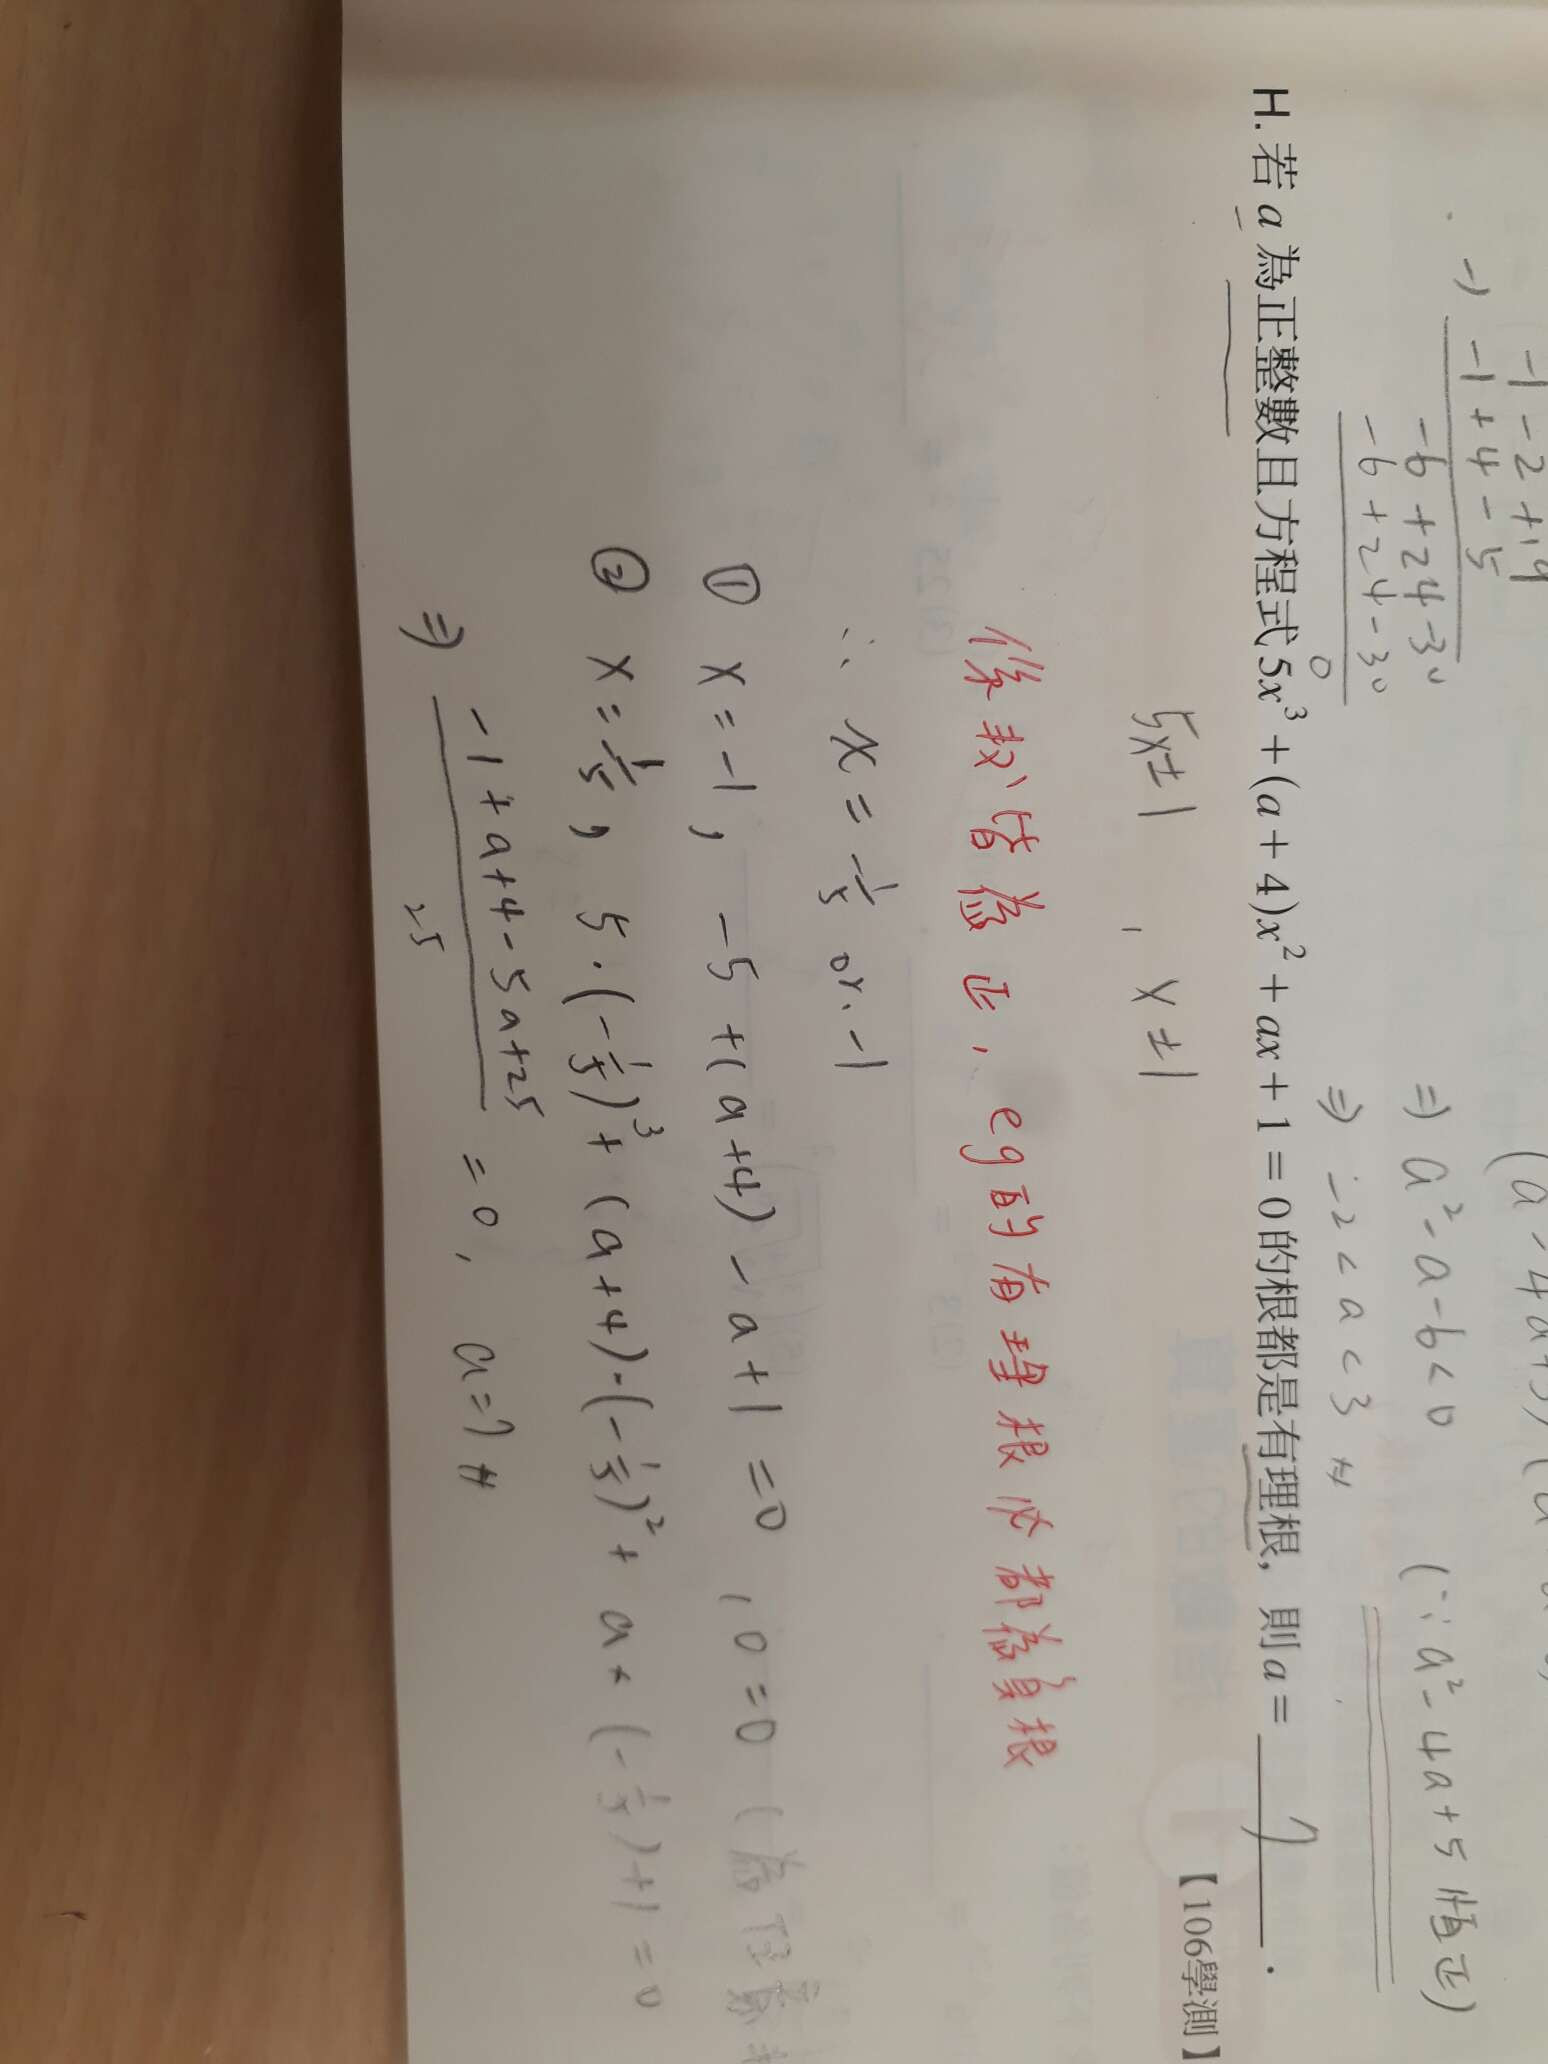 -1 - 2 + 19
-) -1 + 4 - 5
-6 + 24 - 30
-6 + 24 - 30
0
⇒ a² - a - 6 < 0 (∵ a² - 4a + 5 恒正)
⇒ -2 < a < 3 #
H. 若 a 為正整數且方程式 5x³ + (a + 4)x² + ax + 1 = 0 的根都是有理根，則 a = 7 .
【106學測】
5x±1 , x±1
係數皆為正, eg的有理根必都為負根
∴ x = -1/5 or -1
① x = -1, -5 + (a+4) - a + 1 = 0 , 0 = 0
② x = -1/5, 5·(-1/5)³ + (a+4)·(-1/5)² + a × (-1/5) + 1 = 0
⇒ (-1 + a + 4 - 5a + 25)/25 = 0, a = 7 #